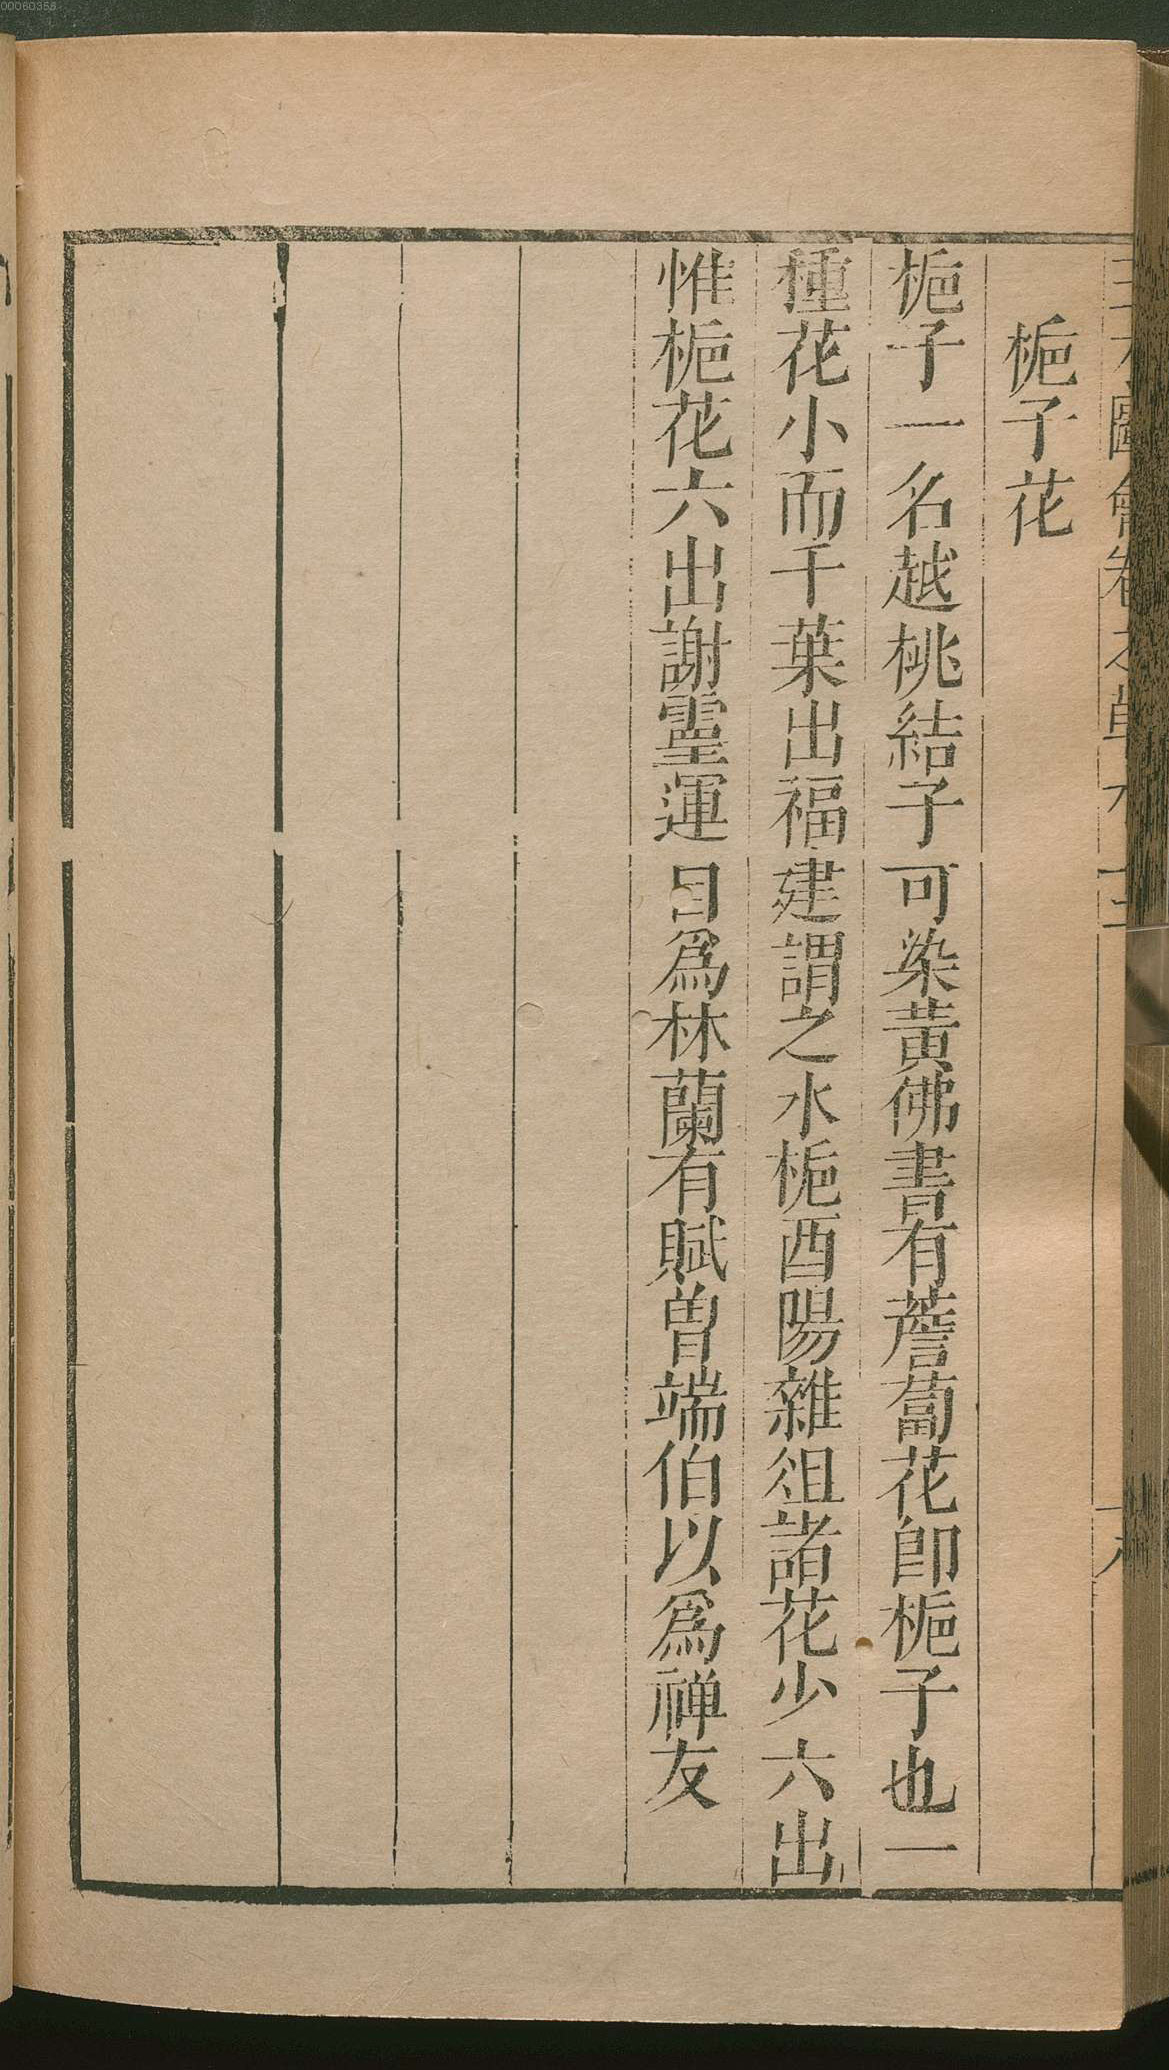 00060358
三才圖會卷之草木十二
十八
梔子花
梔子一名越桃結子可染黃佛書有薝蔔花卽梔子也一
種花小而千葉出福建謂之水梔酉陽雜俎諸花少六出
惟梔花六出謝靈運目爲林蘭有賦曾端伯以爲禅友